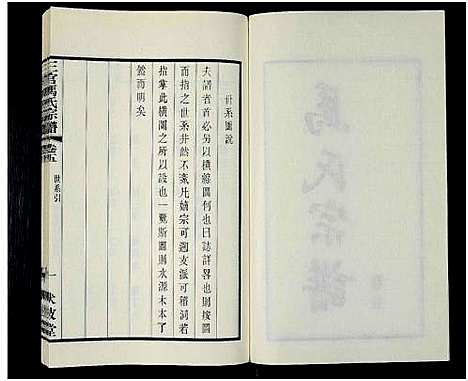 馮氏宗譜
世系圖說
夫譜者首必另以橫縱圖何曰誌詳畧也則按圖
而指之世系井然不紊凡嫡宗可遡支派可稽洞若
指掌此橫圖之所以設一覽斯圖則水源木本了
然而明矣
三官馮氏宗譜
卷五
世系引
一